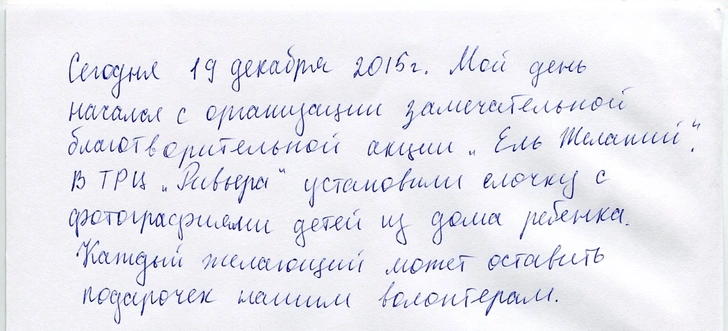 Сегодня 19 декабря 2015г. Мой день
начался с организации замечательной
благотворительной акции „Ель Желаний“.
В ТРЦ „Ривьера“ установили елочку с
фотографиями детей из дома ребенка.
Каждый желающий может оставить
подарочек нашим волонтерам.